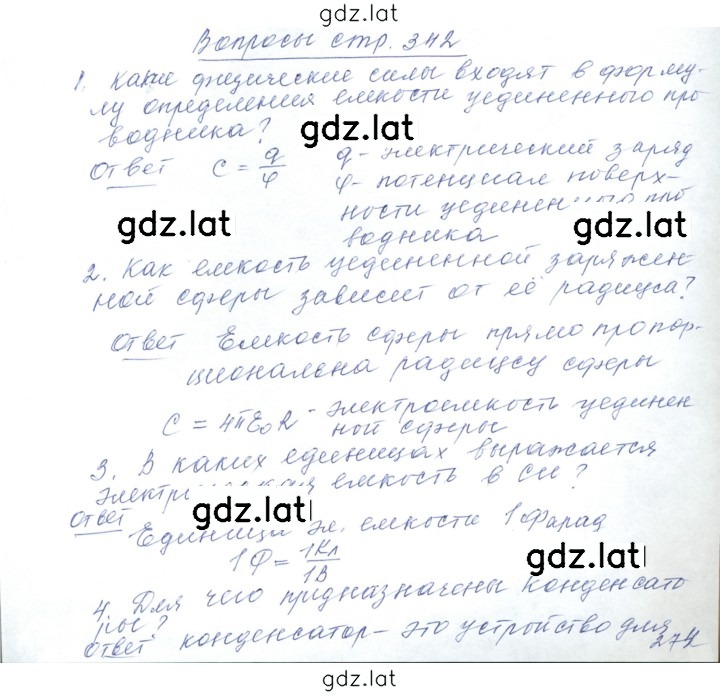 gdz.lat
Вопросы стр. 342
1. Какие физические силы входят в форму-
лу определения емкости уединенного про
водника?
gdz.lat
Ответ C = q/φ q - электрический заряд
φ - потенциал поверх-
ности уединенного про
gdz.lat gdz.lat
водника
2. Как емкость уединенной заряжен-
ной сферы зависит от её радиуса?
Ответ Емкость сферы прямо пропор-
циональна радиусу сферы
C = 4πε₀R - электроемкость уединен
ной сферы
3. В каких единицах выражается
электрическая емкость в СИ?
Ответ gdz.lat
Единица эл. емкости 1 Фарад
1Ф = 1Кл/1В
gdz.lat
4. Для чего предназначены конденсато
ры?
Ответ конденсатор - это устройство для
274
gdz.lat